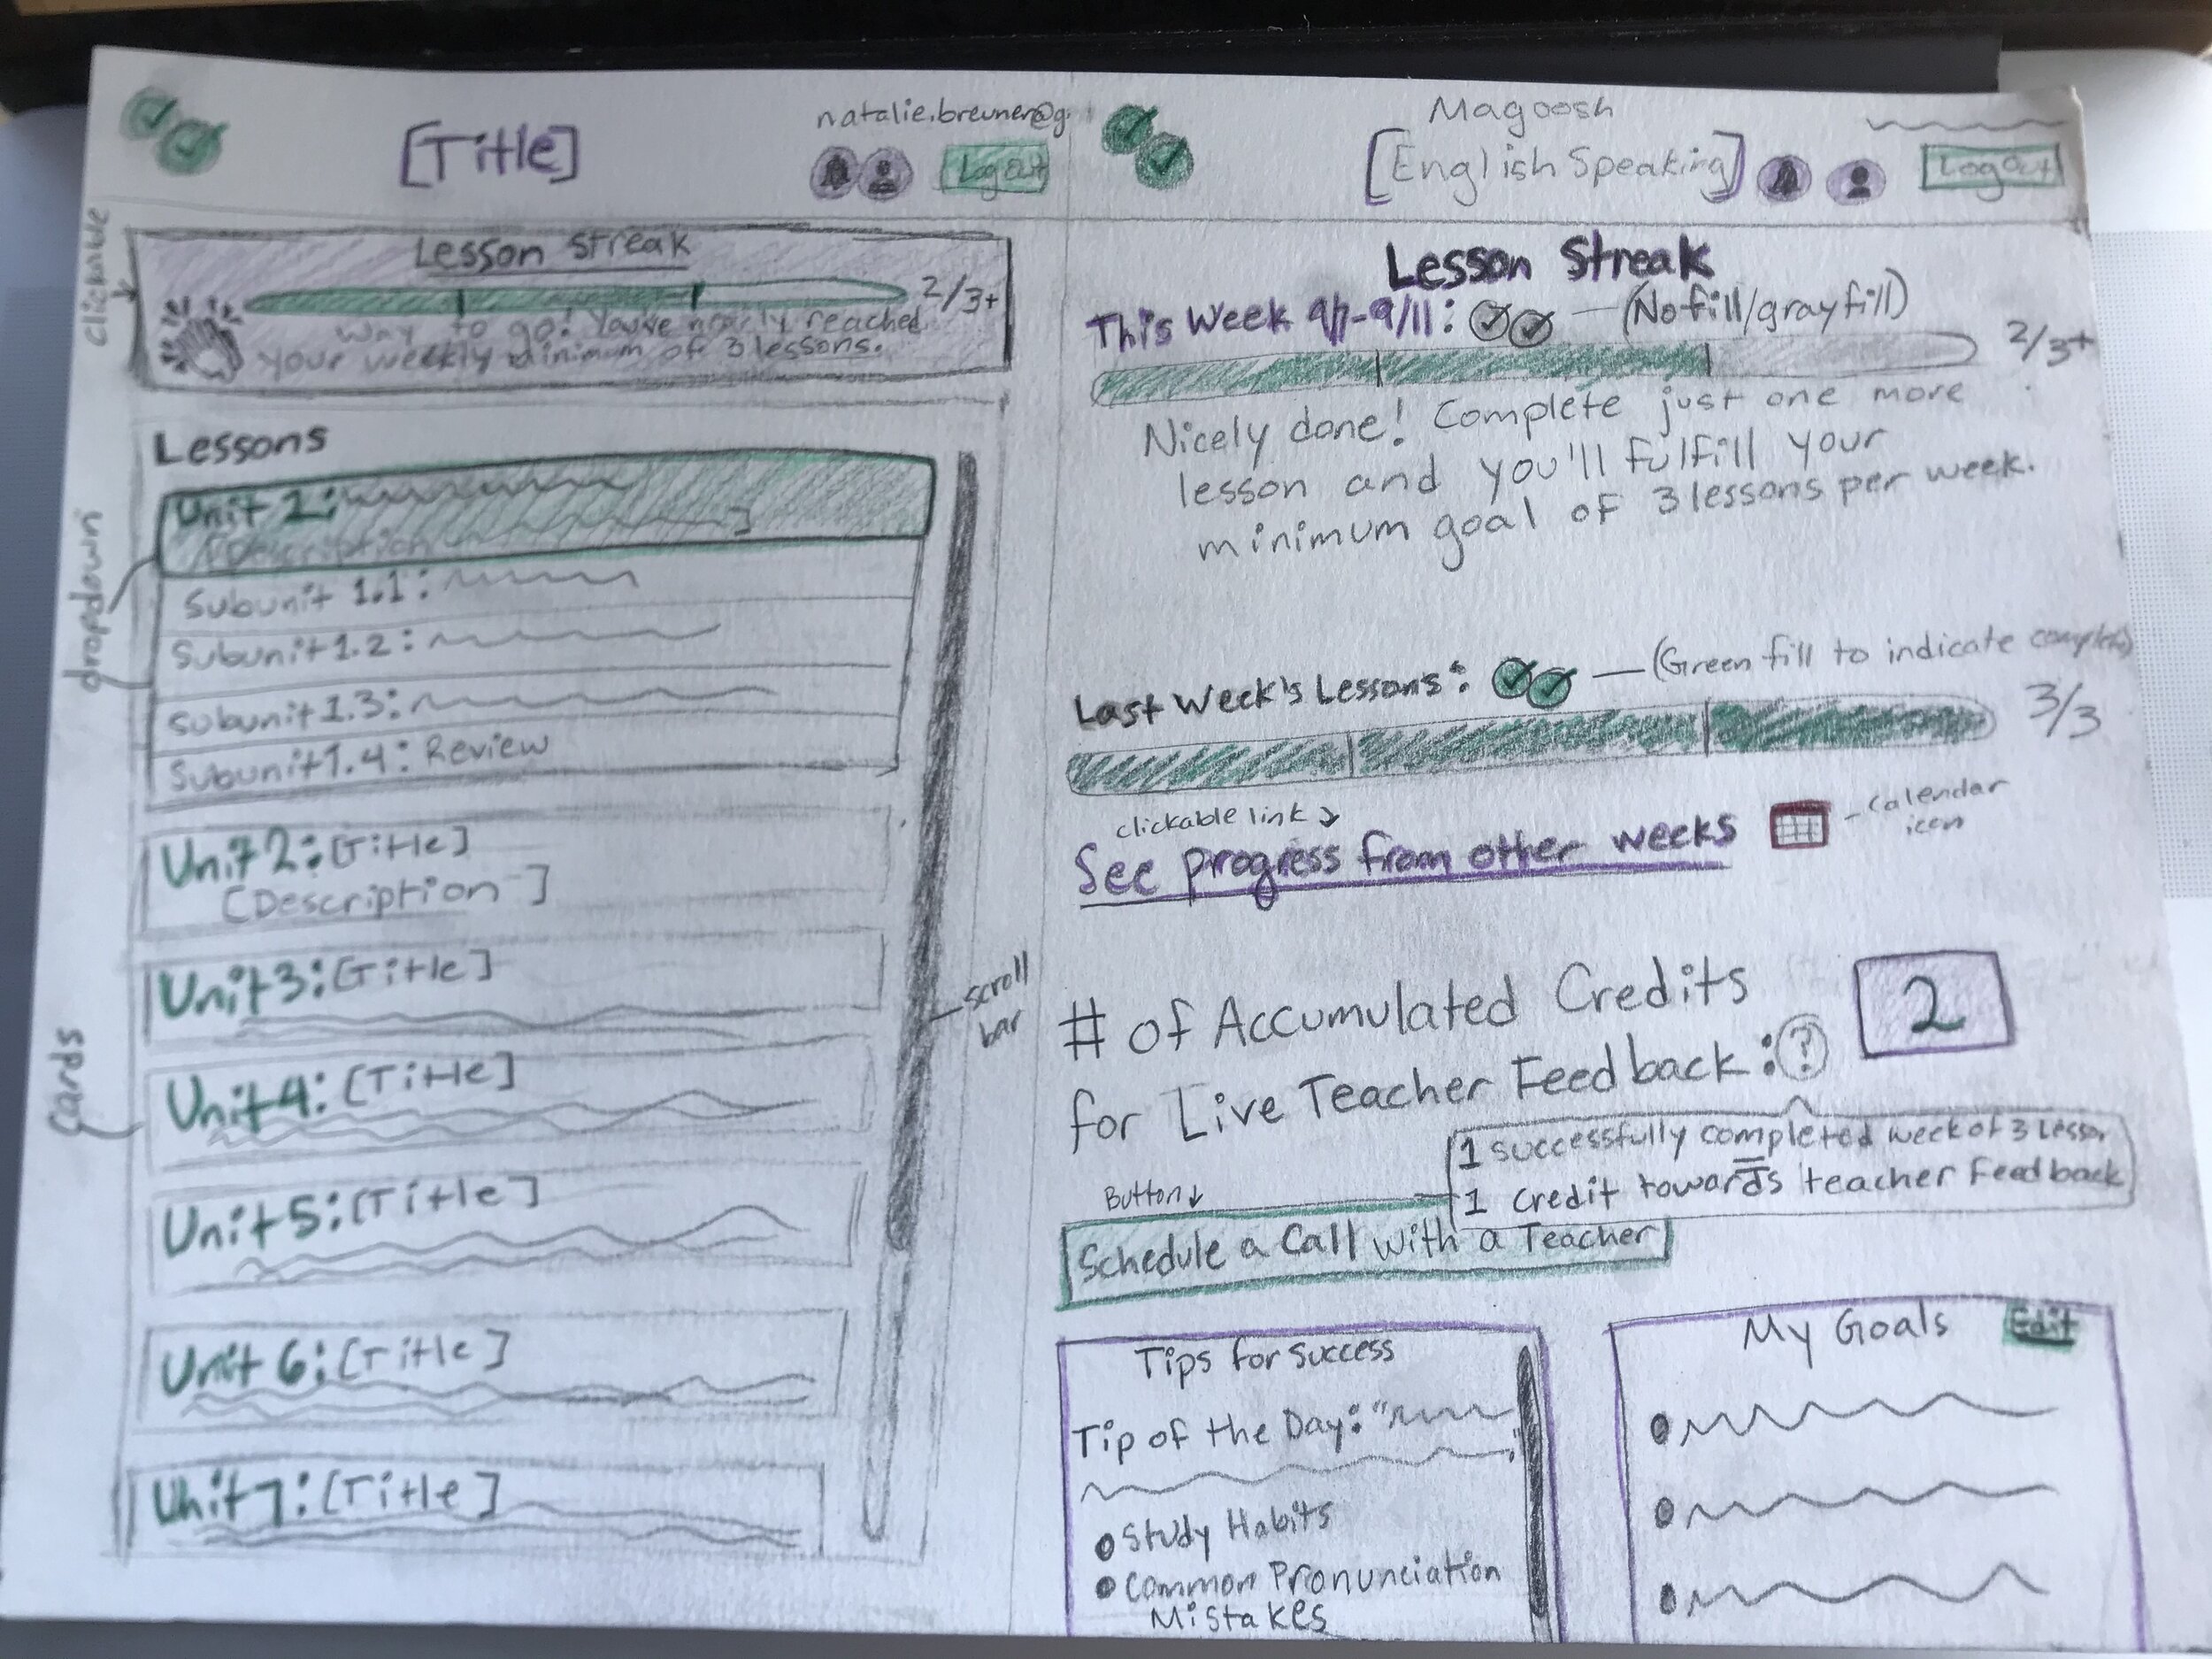 [Title]
natalie.breuner@g.
Log Out
clickable
Lesson Streak
2/3+
Way to go! You've nearly reached
your weekly minimum of 3 lessons.
Lessons
dropdown
Unit 1:
[Description ]
Subunit 1.1:
Subunit 1.2:
Subunit 1.3:
Subunit 1.4: Review
Unit 2: [Title]
[Description ]
Unit 3: [Title]
scroll
bar
cards
Unit 4: [Title]
Unit 5: [Title]
Unit 6: [Title]
Unit 7: [Title]
Magoosh
[English Speaking]
Log Out
Lesson Streak
This Week 9/7-9/11: — (No fill/gray fill)
2/3+
Nicely done! Complete just one more
lesson and you'll fulfill your
minimum goal of 3 lessons per week.
Last Week's Lessons: — (Green fill to indicate complete)
3/3
clickable link
See progress from other weeks
- Calendar
icon
# of Accumulated Credits
for Live Teacher Feedback: ?
2
1 successfully completed week of 3 lesson
=
1 credit towards teacher feedback
Button
Schedule a Call with a Teacher
Tips for Success
Tip of the Day: "
• Study Habits
• Common Pronunciation
Mistakes
My Goals
Edit